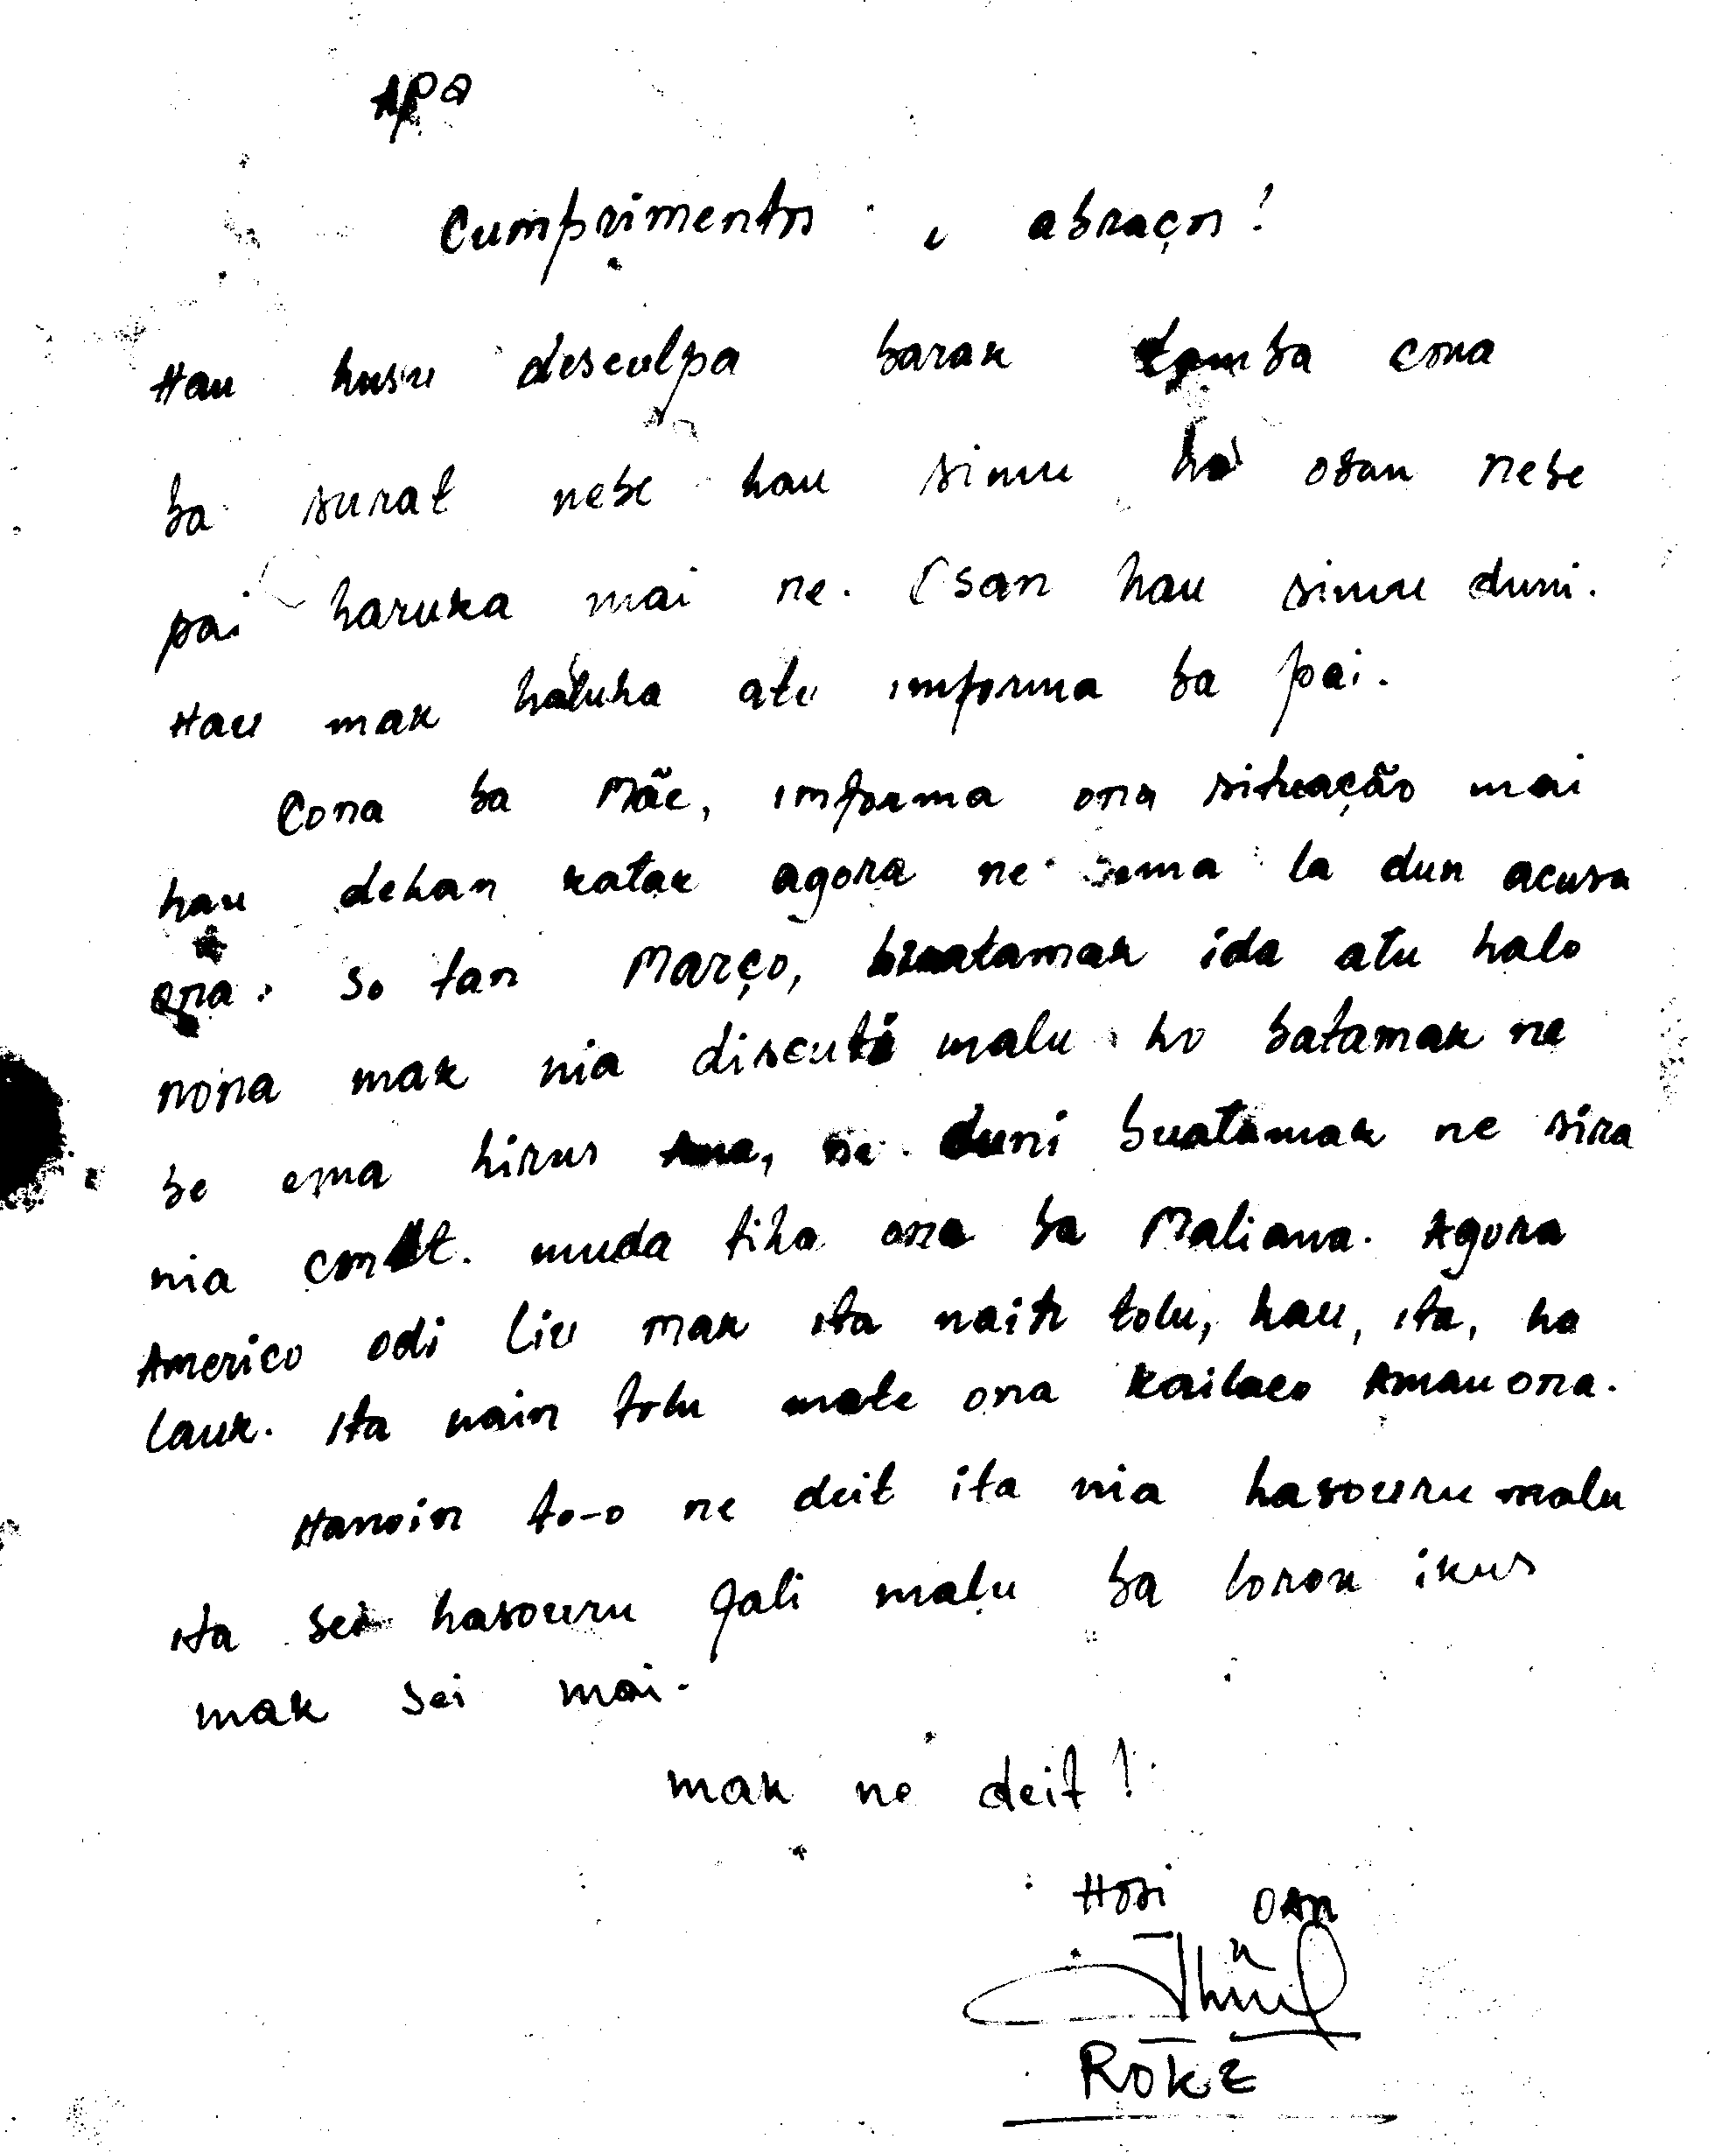 Apa
Cumprimentos e abraços!
Hau husu desculpa barak tamba cona
ba surat nebe hau simu ho osan nebe
pai haruka mai ne. Osan hau simu duni.
Hau mak haluha atu imforma ba pai.
Cona ba Mãe, imforma ona situação mai
hau dehan katak agora ne ema la dun acusa
ona. So tan Março, buatamak ida atu halo
nona mak nia discuti malu ho batamak ne
be ema hirus, ne duni buatamak ne sira
nia muda tiha ona ba Maliana. Agora
Americo odi liu mak ita nain tolu, hau, ita, ho
Lauk. Ita nain tolu mate ona Kailaco Amau ona.
Hanoin to-o ne deit ita nia hasouru malu
ita sei hasouru fali malu ba loron ikus
mak sei mai.
mak ne deit!
Hosi oan
ROKE